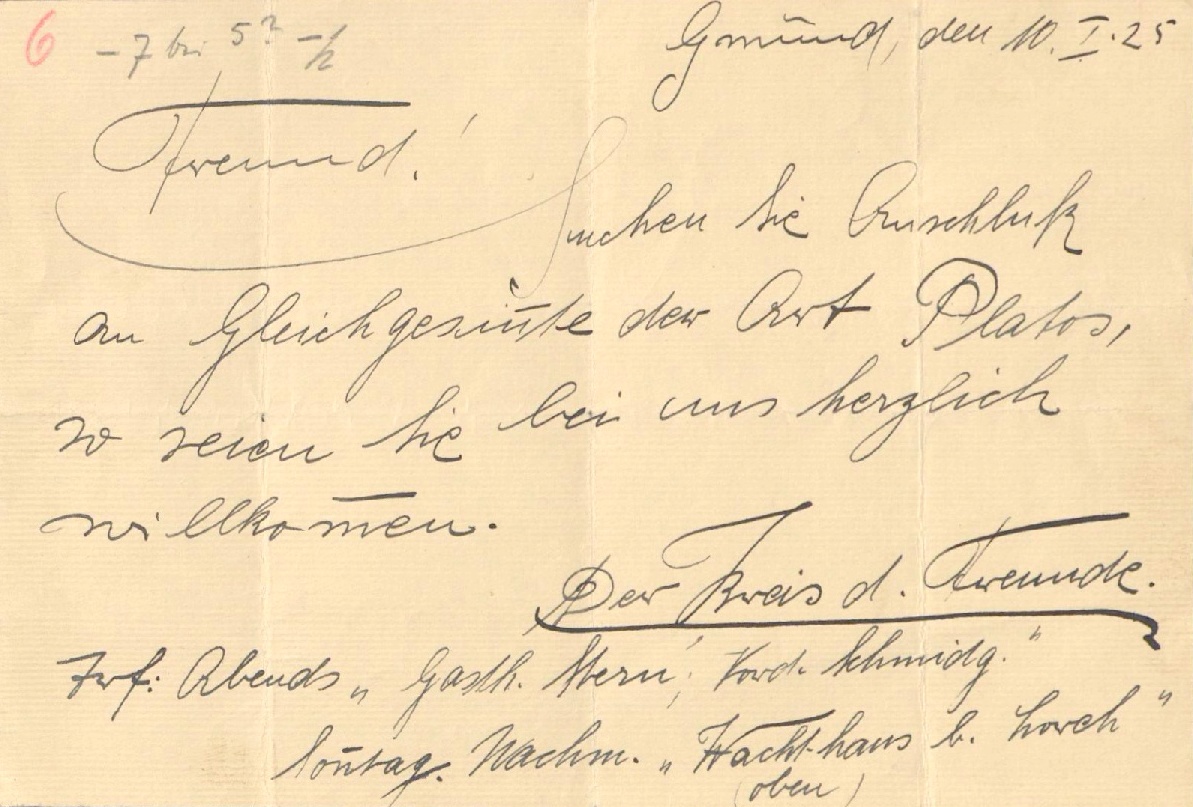 6 -7 bis 5? -½
Gmünd, den 10. I. 25
Freund!
Suchen Sie Anschluß
an Gleichgesin̄te der Art Platos,
so seien Sie bei uns herzlich
willkom̄en.
Der Kreis d. Freunde.
Trf: Abends „ Gasth. Stern; Vord. Schmidg.“
Son̄tag. Nachm. „Wachthaus b. Lorch“
(oben)